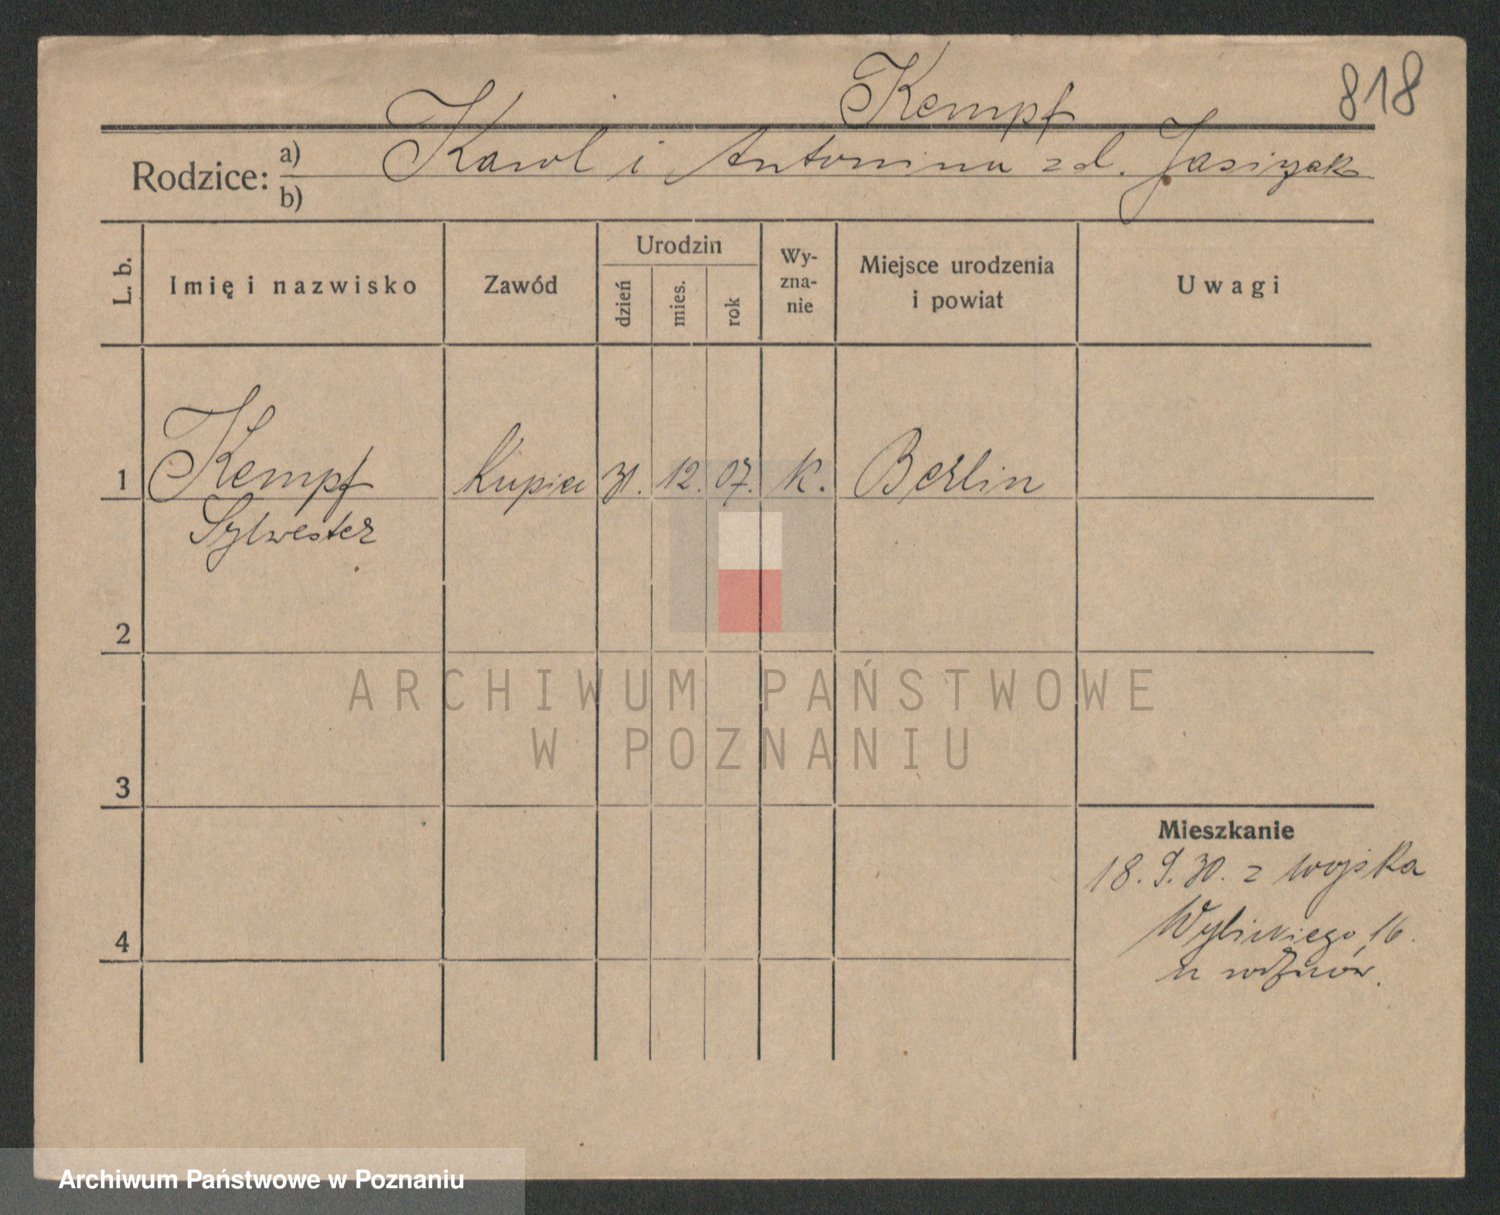 818
Kempf
Rodzice: a) Karol i Antonina zd. Jasizak
b)
L. b. Imię i nazwisko Zawód Urodzin dzień mies. rok Wy-zna-nie Miejsce urodzenia i powiat Uwagi
1 Kempf Kupiec 31. 12. 07. K. Berlin
Sylwester
2
ARCHIWUM PAŃSTWOWE
W POZNANIU
3
Mieszkanie
18. 9. 30. z wojska
4 Wybickiego 16.
u
Archiwum Państwowe w Poznaniu